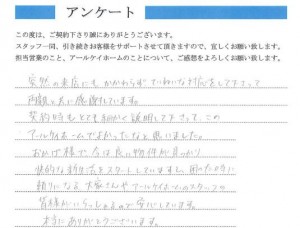 アンケート
この度は、ご契約下さり誠にありがとうございます。
スタッフ一同、引き続きお客様をサポートさせて頂きますので、宜しくお願い致します。
担当営業のこと、アールケイホームのことについて、ご感想をよろしくお願い致します。
突然の来店にもかかわらずていねいな対応をして下さって
両親と共に感謝しています。
契約時もとても細かく説明して下さって、この
アールケイホームでよかったなと思いました。
おかげ様で、今は良い物件が見つかり
快適な新生活をスタートしています。困った時に
頼りになる大家さんやアールケイホームのスタッフの
皆様がいらっしゃるので安心しています。
本当にありがとうございます。